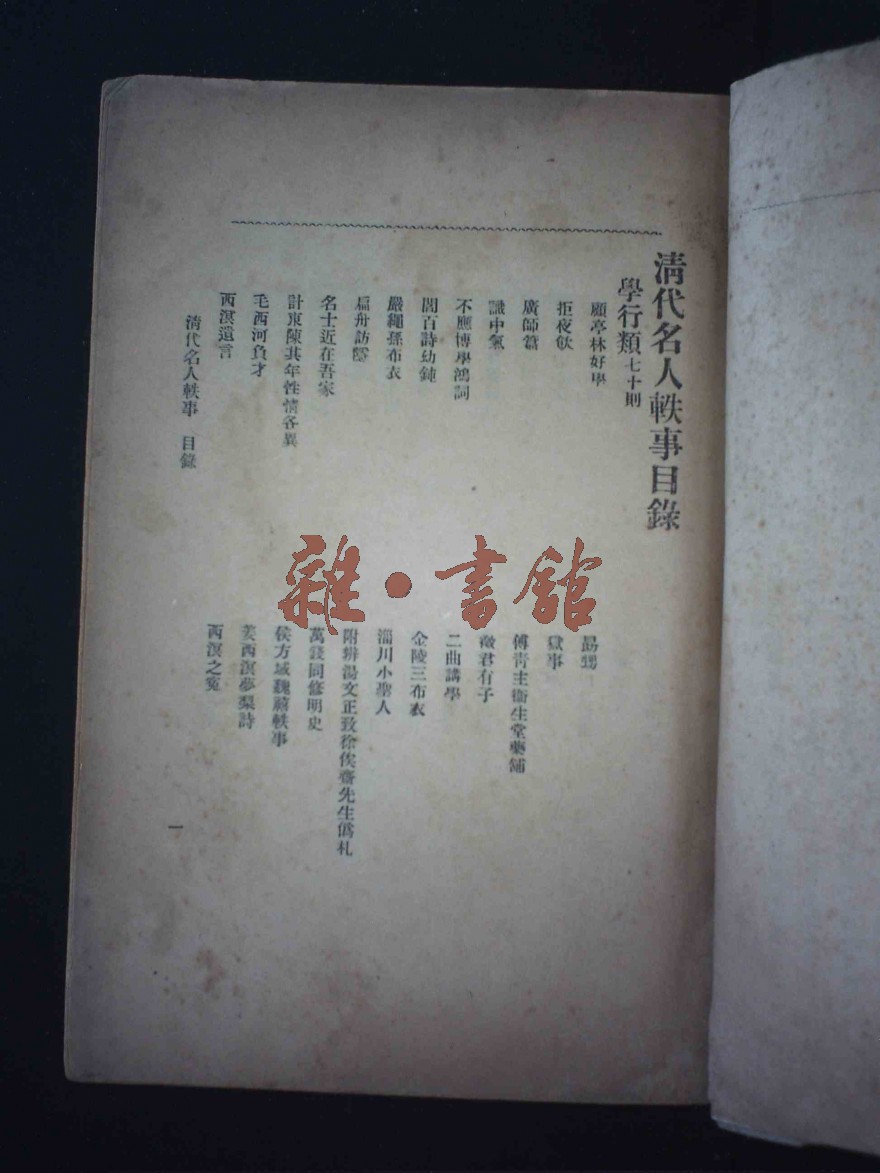 清代名人軼事目錄
學行類七十則
顧亭林好學
勗甥
拒夜飲
黨事
廣師篇
傅青主衞生堂藥舖
識中氣
徵君有子
不應博學鴻詞
二曲講學
閻百詩幼鈍
金陵三布衣
嚴繩孫布衣
淄川小聖人
扁舟訪
附辨湯文正致徐俟齋先生僞札
名士近在吾家
萬 同修明史
計東陳其年性情各異
侯方域魏禧軼事
毛西河負才
姜西溟夢梨詩
西溟遺言
西溟之冤
清代名人軼事 目錄
一
雜·書館